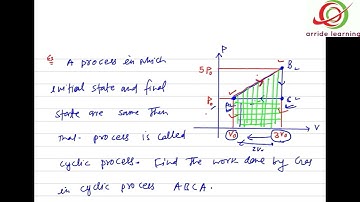 arride learning
Ex A process in which
initial state and final
state are same then
that process is called
cyclic process. Find the work done by Gas
in cyclic process ABCA.
P
5P0
P0
B
A
C
V0
3V0
V
2V0